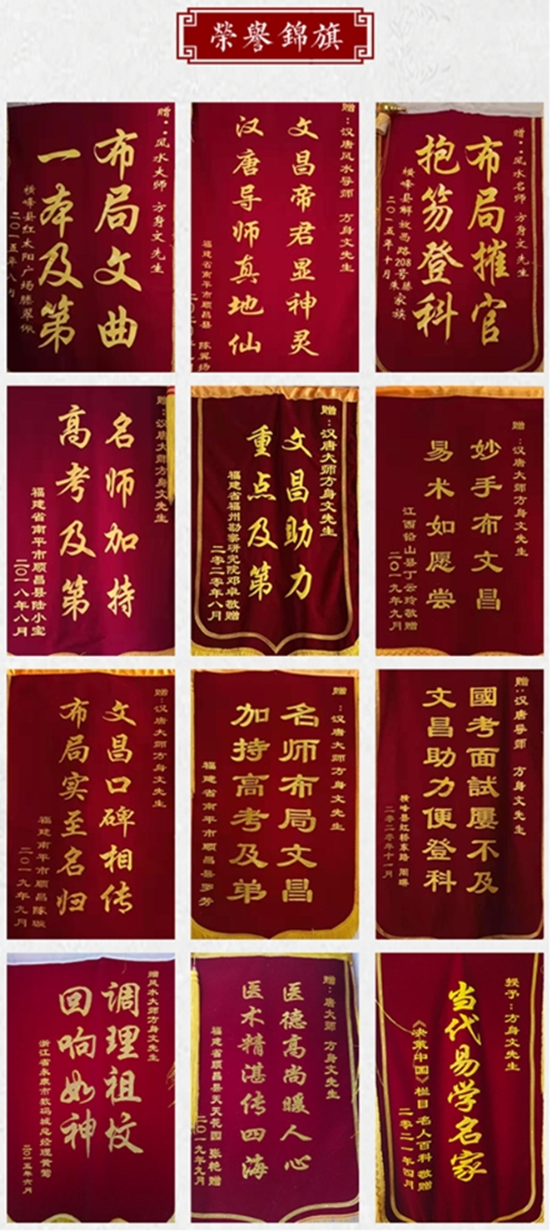 榮譽錦旗
赠:风水大师 方身文先生
布局文曲
一本及第
横峰县红太阳广场滕翠佩
二〇一五年 月
赠:汉唐风水导师 方身文先生
文昌帝君显神灵
汉唐导师真地仙
福建省南平市顺昌县
赠:风水名师 方身文先生
布局摧官
抱笏登科
横峰县解放西路208号 家族
二〇一五年十月
赠:汉唐大师方身文先生
名师加持
高考及第
福建省南平市顺昌县陆小宝
二〇一八年八月
赠:汉唐大师方身文先生
文昌助力
重点及第
福建省福州勘察研究院邓卓敬赠
二〇二〇年八月
赠:汉唐大师方身文先生
妙手布文昌
易术如愿尝
江西铅山县丁云玲敬赠
二〇一九年九月
赠:汉唐大师方身文先生
文昌口碑相传
布局实至名归
福建南平市顺昌陈璇
二〇一九年九月
赠:汉唐大师方身文先生
名师布局文昌
加持高考及弟
福建省南平市顺昌县罗芳
赠:汉唐导师 方身文先生
國考面試屢不及
文昌助力便登科
横峰县红桥东路 周璐
二〇二〇年十一月
赠风水大师方身文先生
调理祖坟
回响如神
浙江省永康市数码城总经理黄菊
二〇一五年六月
赠:唐大师 方身文先生
医德高尚暖人心
医术精湛传四海
福建省顺昌县天天花园 张艳 赠
二〇一九年九月
授予:方身文先生
当代易学名家
《发现中国》栏目 名人百科 敬赠
二〇二一年四月